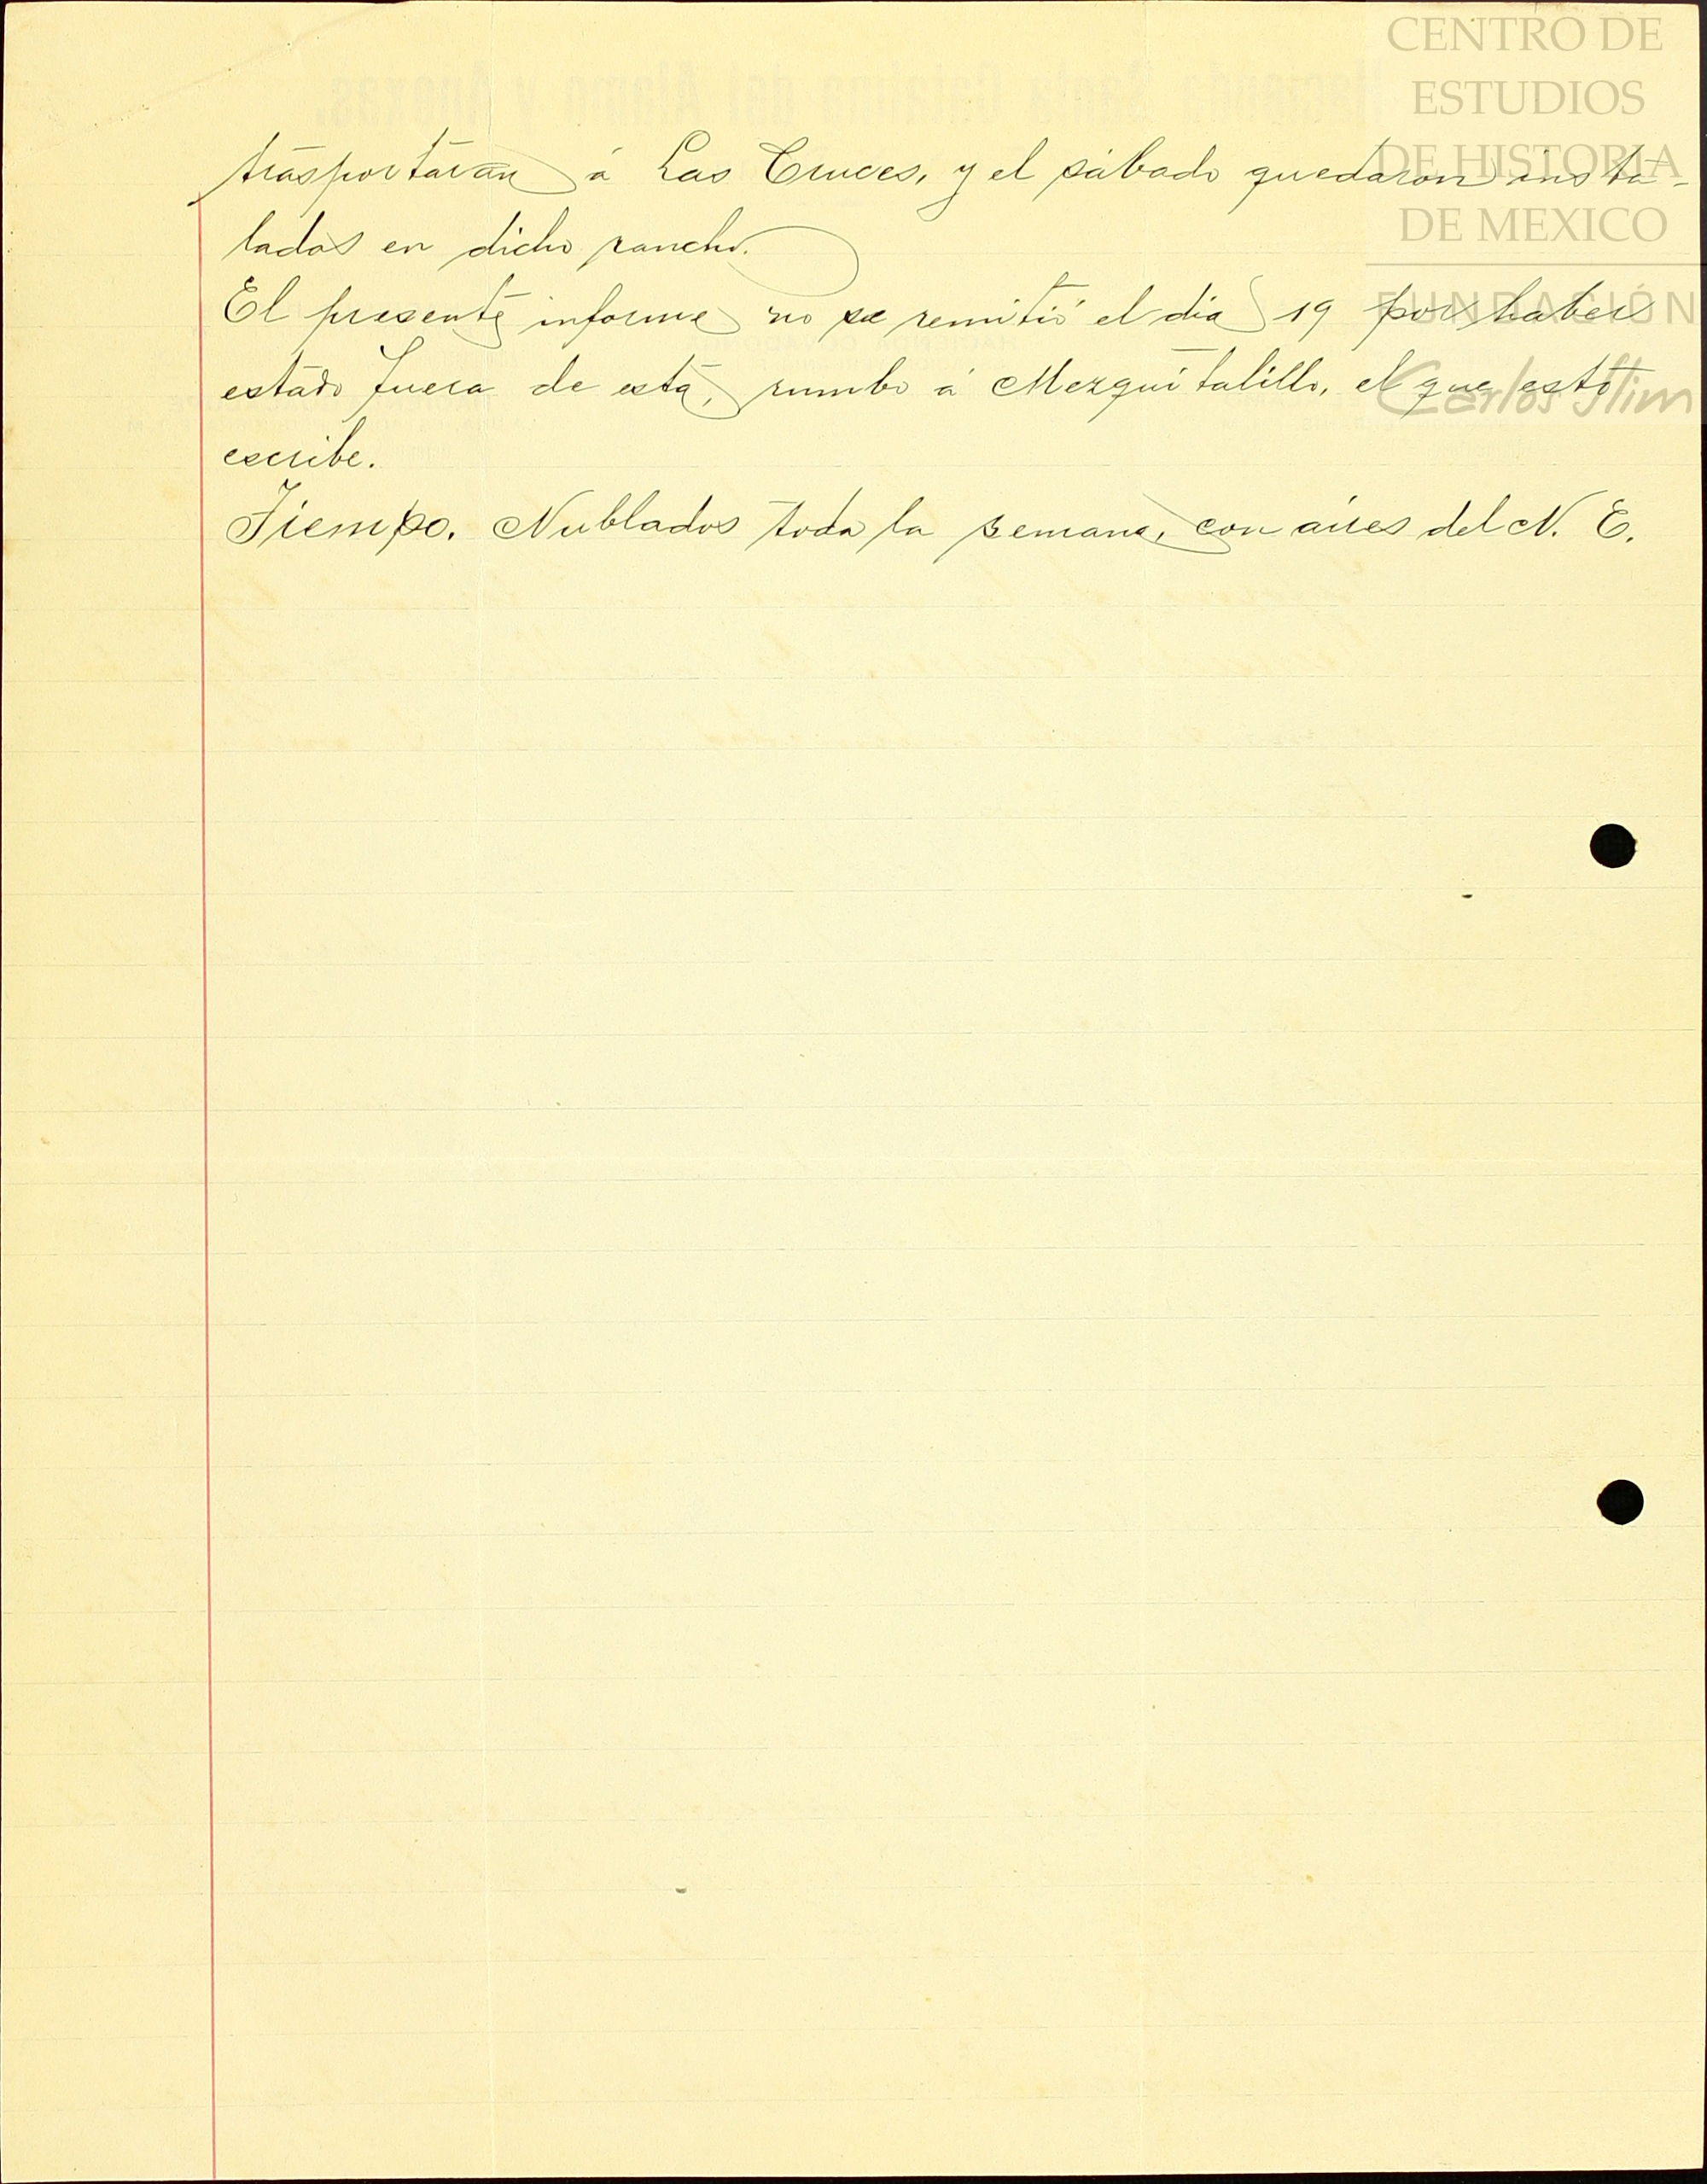 CENTRO DE
ESTUDIOS
DE HISTORIA
DE MEXICO
FUNDACIÓN
Carlos Slim
trasportaran á Las Cruces, y el sábado quedaron insta-
lados en dicho rancho.
El presente informe no se remitió el dia 19 por haber
estado fuera de esta, rumbo á Mezquitalillo, el que esto
escribe.
Tiempo. Nublados toda la semana, con aires del N. E.